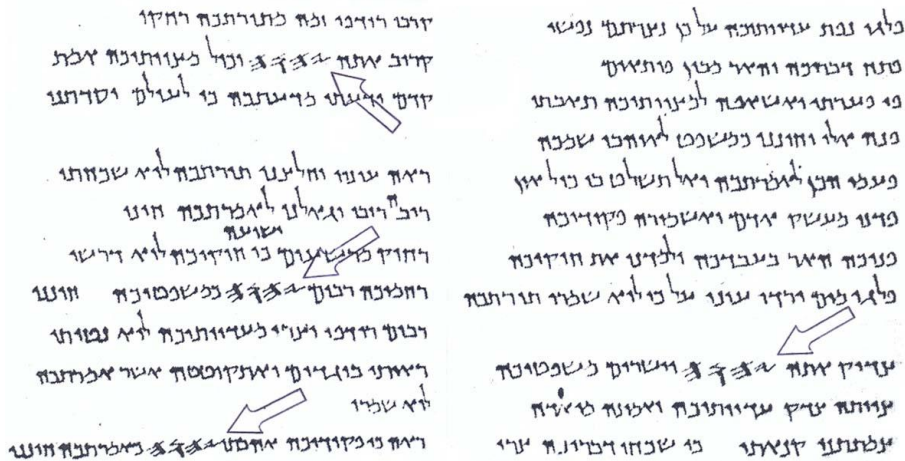 פלגי נפת עדוותיכה על כן נצרתם נפשי
פתח דבריכה והאר מבין פותאים
פי פערתי ואשאפה למצוותיכה תאבתי
פנה אלי וחונני כמשפט לאוהבי שמכה
פעמי הכן לאמרתכה ואל תשלט בי כול און
פדני מעשק אדם ואשמורה פקודיכה
פניכה האר בעבדכה ולמדני את חוקיכה
פלגי מים ירדו עיני על כי לוא שמרו תורתכה
צדיק אתה 𐤉𐤄𐤅𐤄 וישרים משפטיכה
צויתה צדק עדוותיכה ואמונה מואדה
צמתתני קנאתי כי שכחו דבריכה צרי
קרבו רודפי זמה מתורתכה רחקו
קרוב אתה 𐤉𐤄𐤅𐤄 וכול מצוותיכה אמת
קדם ידעתי מדעתכה כי לעולם יסדתני
ראה עוניי וחלצני תורתכה לוא שכחתי
ריבה ריבי וגאלני לאמרתכה חיני
ישועה
רחוק מרשעים כי חוקיכה לוא דרשו
רחמיכה רבים 𐤉𐤄𐤅𐤄 כמשפטיכה חונני
רבים רודפי וצרי מעדוותיכה לוא נטיתי
ראיתי בוגדים ואתקוטטה אשר אמרתכה
לוא שמרו
ראה כי פקודיכה אהבתי 𐤉𐤄𐤅𐤄 כאמרתכה חונני